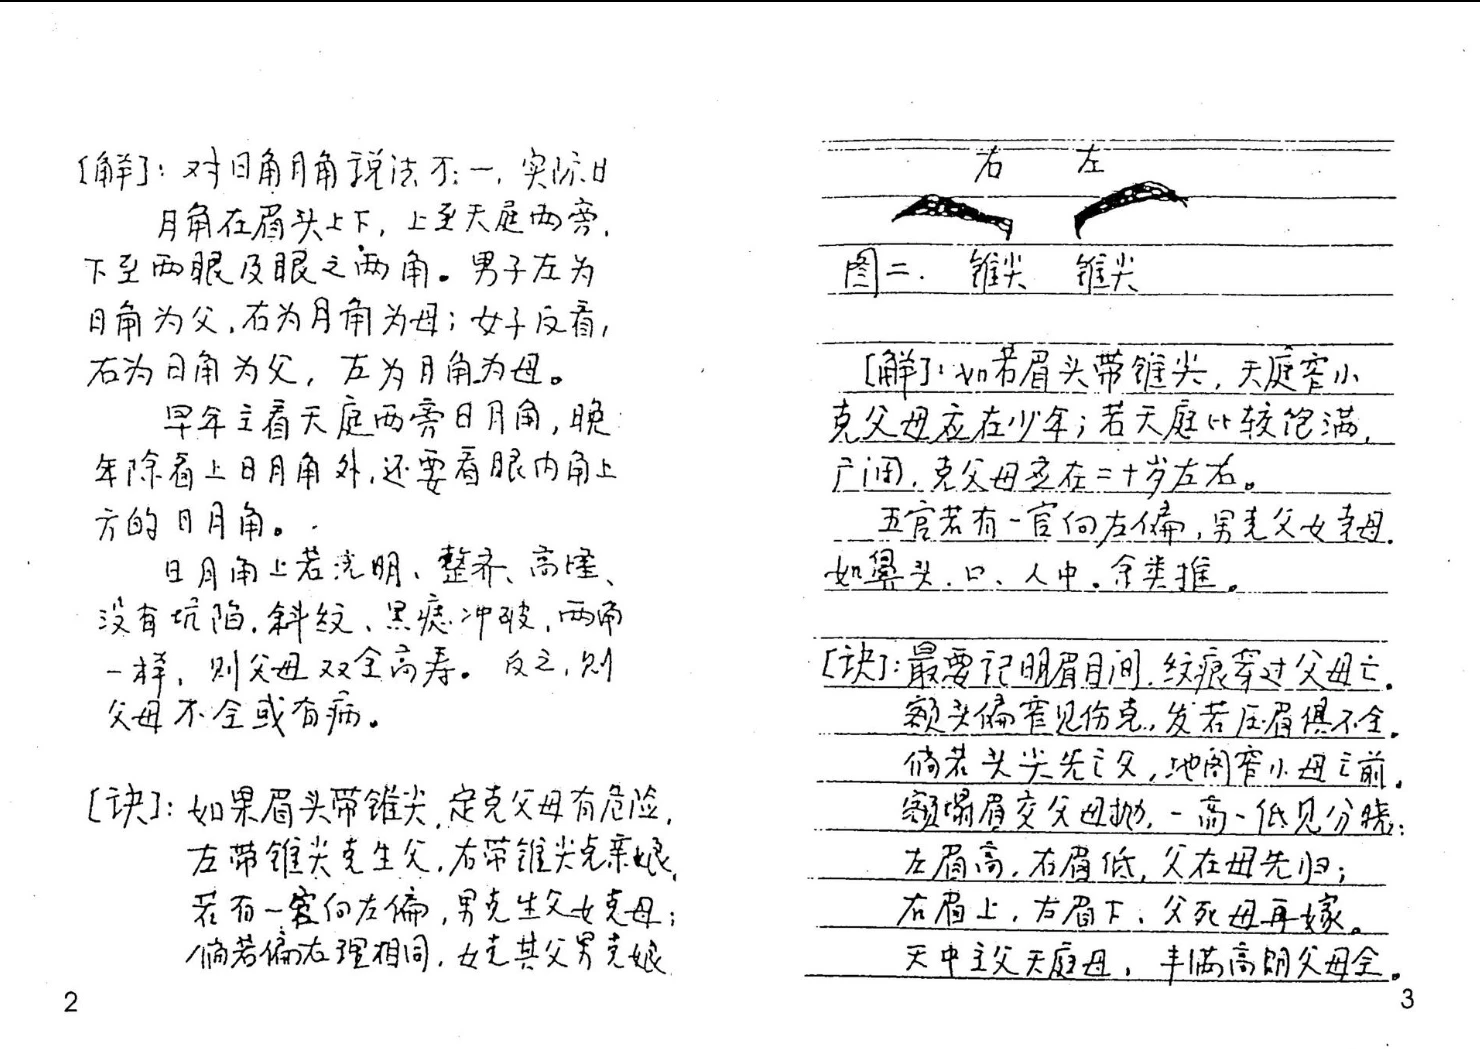 [解]：对日角月角说法不一，实际日
月角在眉头上下，上至天庭两旁，
下至两眼及眼之两角。男子左为
日角为父，右为月角为母；女子反看，
右为日角为父，左为月角为母。
早年主看天庭两旁日月角，晚
年除看上日月角外，还要看眼内角上
方的日月角。
日月角上若光明、整齐、高隆、
没有坑陷，斜纹、黑痣冲破，两角
一样，则父母双全高寿。反之，则
父母不全或有病。
[诀]：如果眉头带锥尖，定克父母有危险，
左带锥尖克生父，右带锥尖克亲娘，
若有一官向左偏，男克生父女克母；
倘若偏右理相同，女克其父男克娘
2
右 左
图二. 锥尖 锥尖
[解]：如若眉头带锥尖，天庭窄小
克父母应在少年；若天庭比较饱满，
广阔，克父母应在二十岁左右。
五官若有一官向左偏，男克父女克母．
如鼻头、口、人中。余类推。
[诀]：最要记明眉目间，纹痕穿过父母亡．
额头偏窄见伤克，发若压眉俱不全．
倘若头尖先亡父，地阁窄小母亡前．
额塌眉交父母抛，一高一低见分晓：
左眉高，右眉低，父在母先归；
右眉上，左眉下，父死母再嫁。
天中主父天庭母，丰满高朗父母全。
3